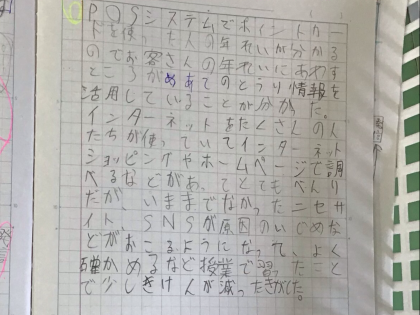 POSシステムでポイントカー
ドを使った人の年れいが分かる
のでお客さんの年れいにあわす
ところがめあてのとうり情報を
活用していることが分かた。
インターネットをたくさんの人
たちが使っていてインターネット
ショッピングやホームページで調
べるなどがあってとてもべんり
だが、いままでなかったニセサ
イト、SNSが原因のいじめな
どがおこるようになって、よく
確かめるなど授業で習ったこと
で少しきけんが減ったきがした。